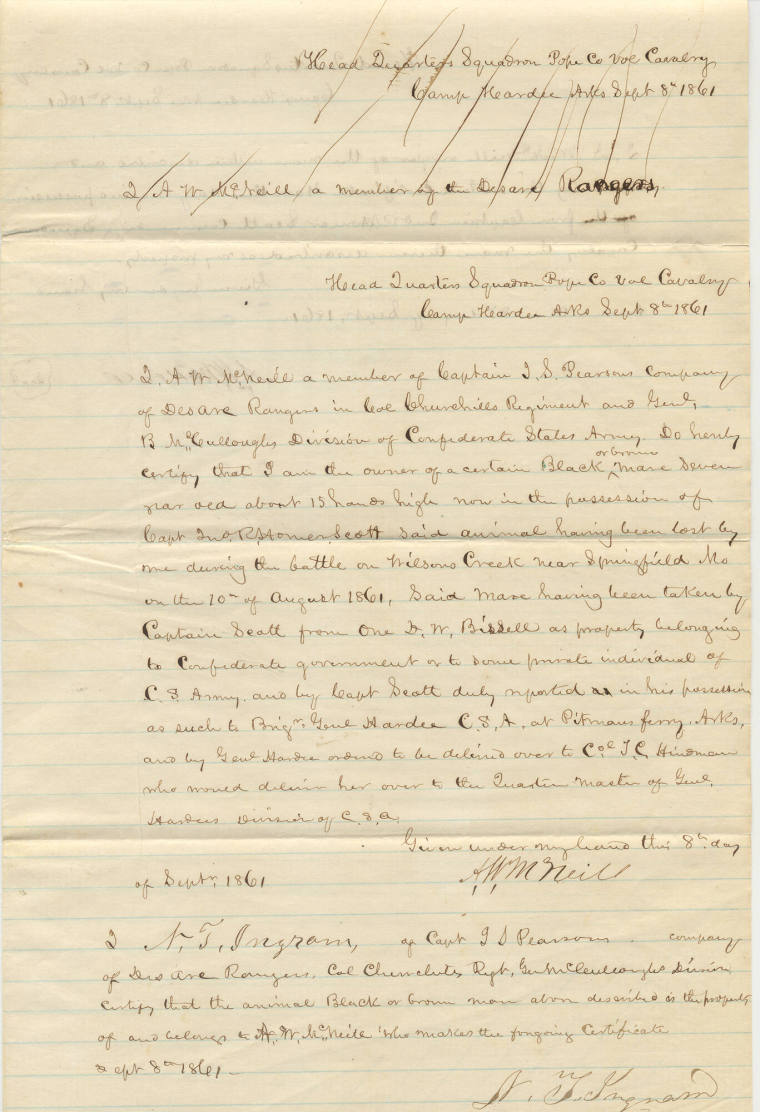 Head Quarters Squadron Pope Co Vol Cavalry
Camp Hardee Arks Sept 8th 1861
I A W McNeill a member of the Desarc Rangers,
Head Quarters Squadron Pope Co Vol Cavalry
Camp Hardee Arks Sept 8th 1861
I, A W McNeill a member of Captain J. S. Pearsons company
of Desarc Rangers in Col Churchills Regiment and Genl,
B McCulloughs Division of Confederate States Army. Do hereby
certify that I am the owner of a certain Black or brown mare Seven
year old about 15 hands high now in the possession of
Capt Jno R, Homer Scott Said animal having been lost by
me during the battle on Wilsons Creek near Springfield Mo
on the 10th of August 1861, Said Mare having been taken by
Captain Scott from One D. W, Bissell as property belonging
to Confederate government or to some private individual of
C. S Army. and by Capt Scott duly reported as in his possession
as such to Brigr Genl Hardee C. S, A, at Pitmans ferry, Arks,
and by Genl Hardee ordered to be delired over to Col T. C, Hindman
who would deliver her over to the Quarter Master of Genl,
Hardees Division of C. S. A,
Given under my hand this 8th day
of Septr, 1861
A, W, McNeill
I N, T, Ingram, of Capt J S Pearsons company
of Des Arc Rangers, Col Churchills Regt, Gen McCulloughs Division
certify that the animal Black or brown mare above described is the property
of and belongs to A, W, McNeill who makes the forgoing Certificate
Sept 8th 1861 –
N. T. Ingram